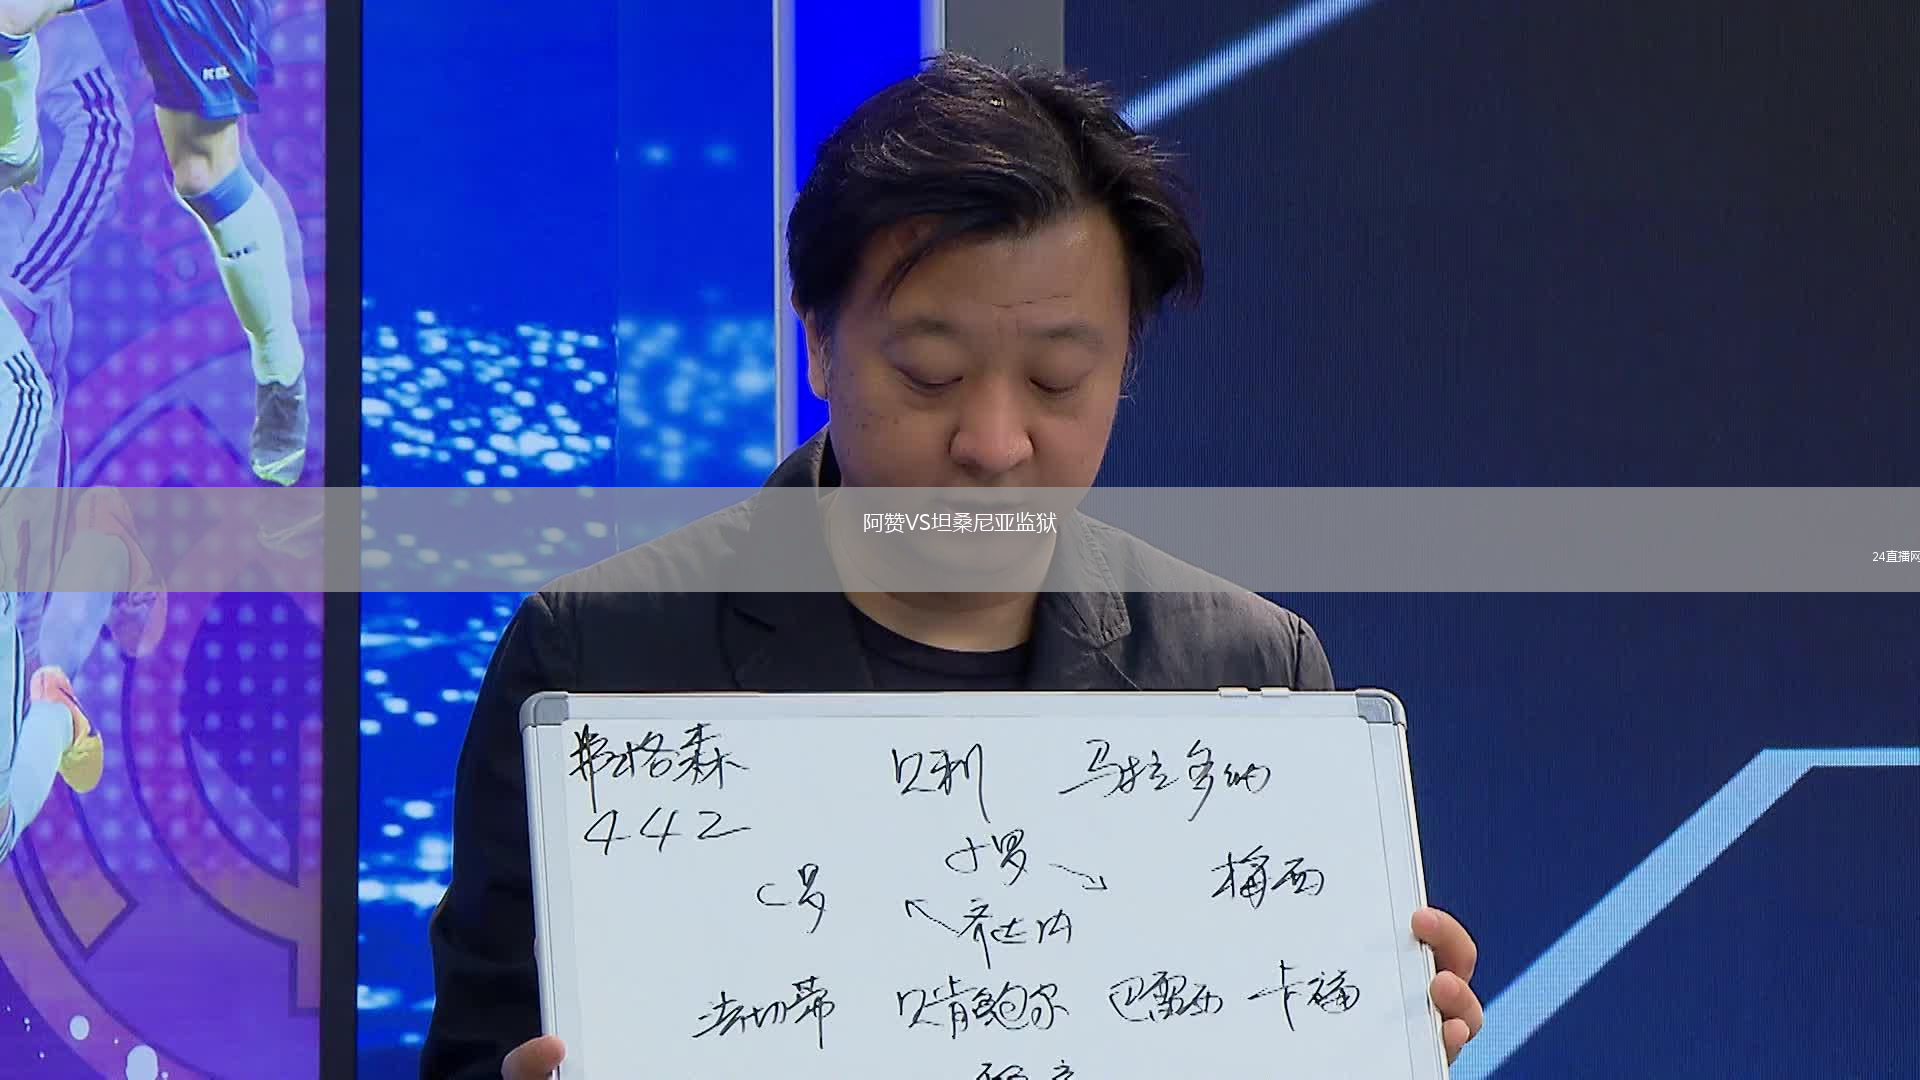 阿赞VS坦桑尼亚监狱
24直播网
弗格森 贝利 马拉多纳
442
小罗
C罗 梅西
齐达内
法切蒂 贝肯鲍尔 巴雷西 卡福